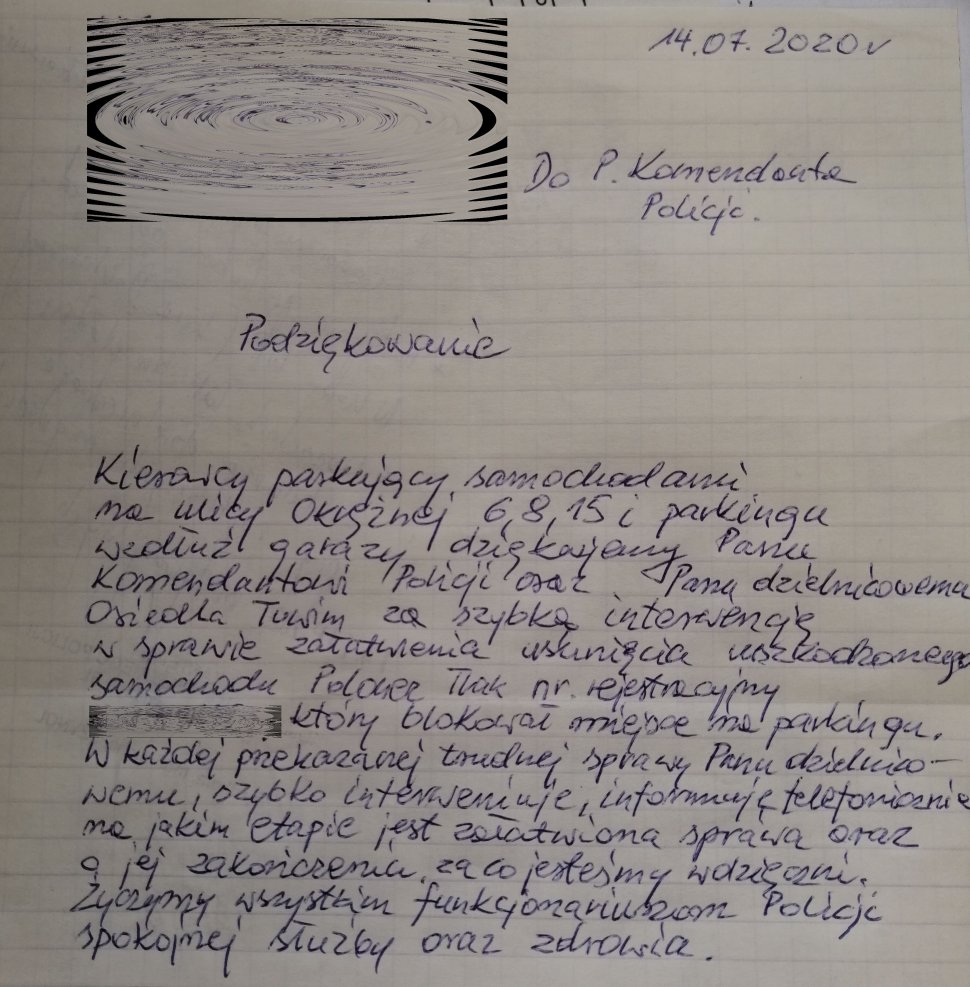 14.07.2020r
Do P. Komendanta
Policji.
Podziękowanie
Kierowcy parkujący samochodami
na ulicy Okrężnej 6,8,15 i parkingu
wzdłuż garaży dziękujemy Panu
Komendantowi Policji oraz Panu dzielnicowemu
Osiedla Tuwim za szybką interwencję
w sprawie załatwienia usunięcia uszkodzonego
samochodu Polonez Trak nr. rejestracyjny
który blokował miejsce na parkingu.
W każdej przekazanej trudnej sprawy Panu dzielnico-
wemu, szybko interweniuje, informuję telefonicznie
na jakim etapie jest załatwiona sprawa oraz
o jej zakończeniu, za co jesteśmy wdzięczni.
Życzymy wszystkim funkcjonariuszom Policji
spokojnej służby oraz zdrowia.